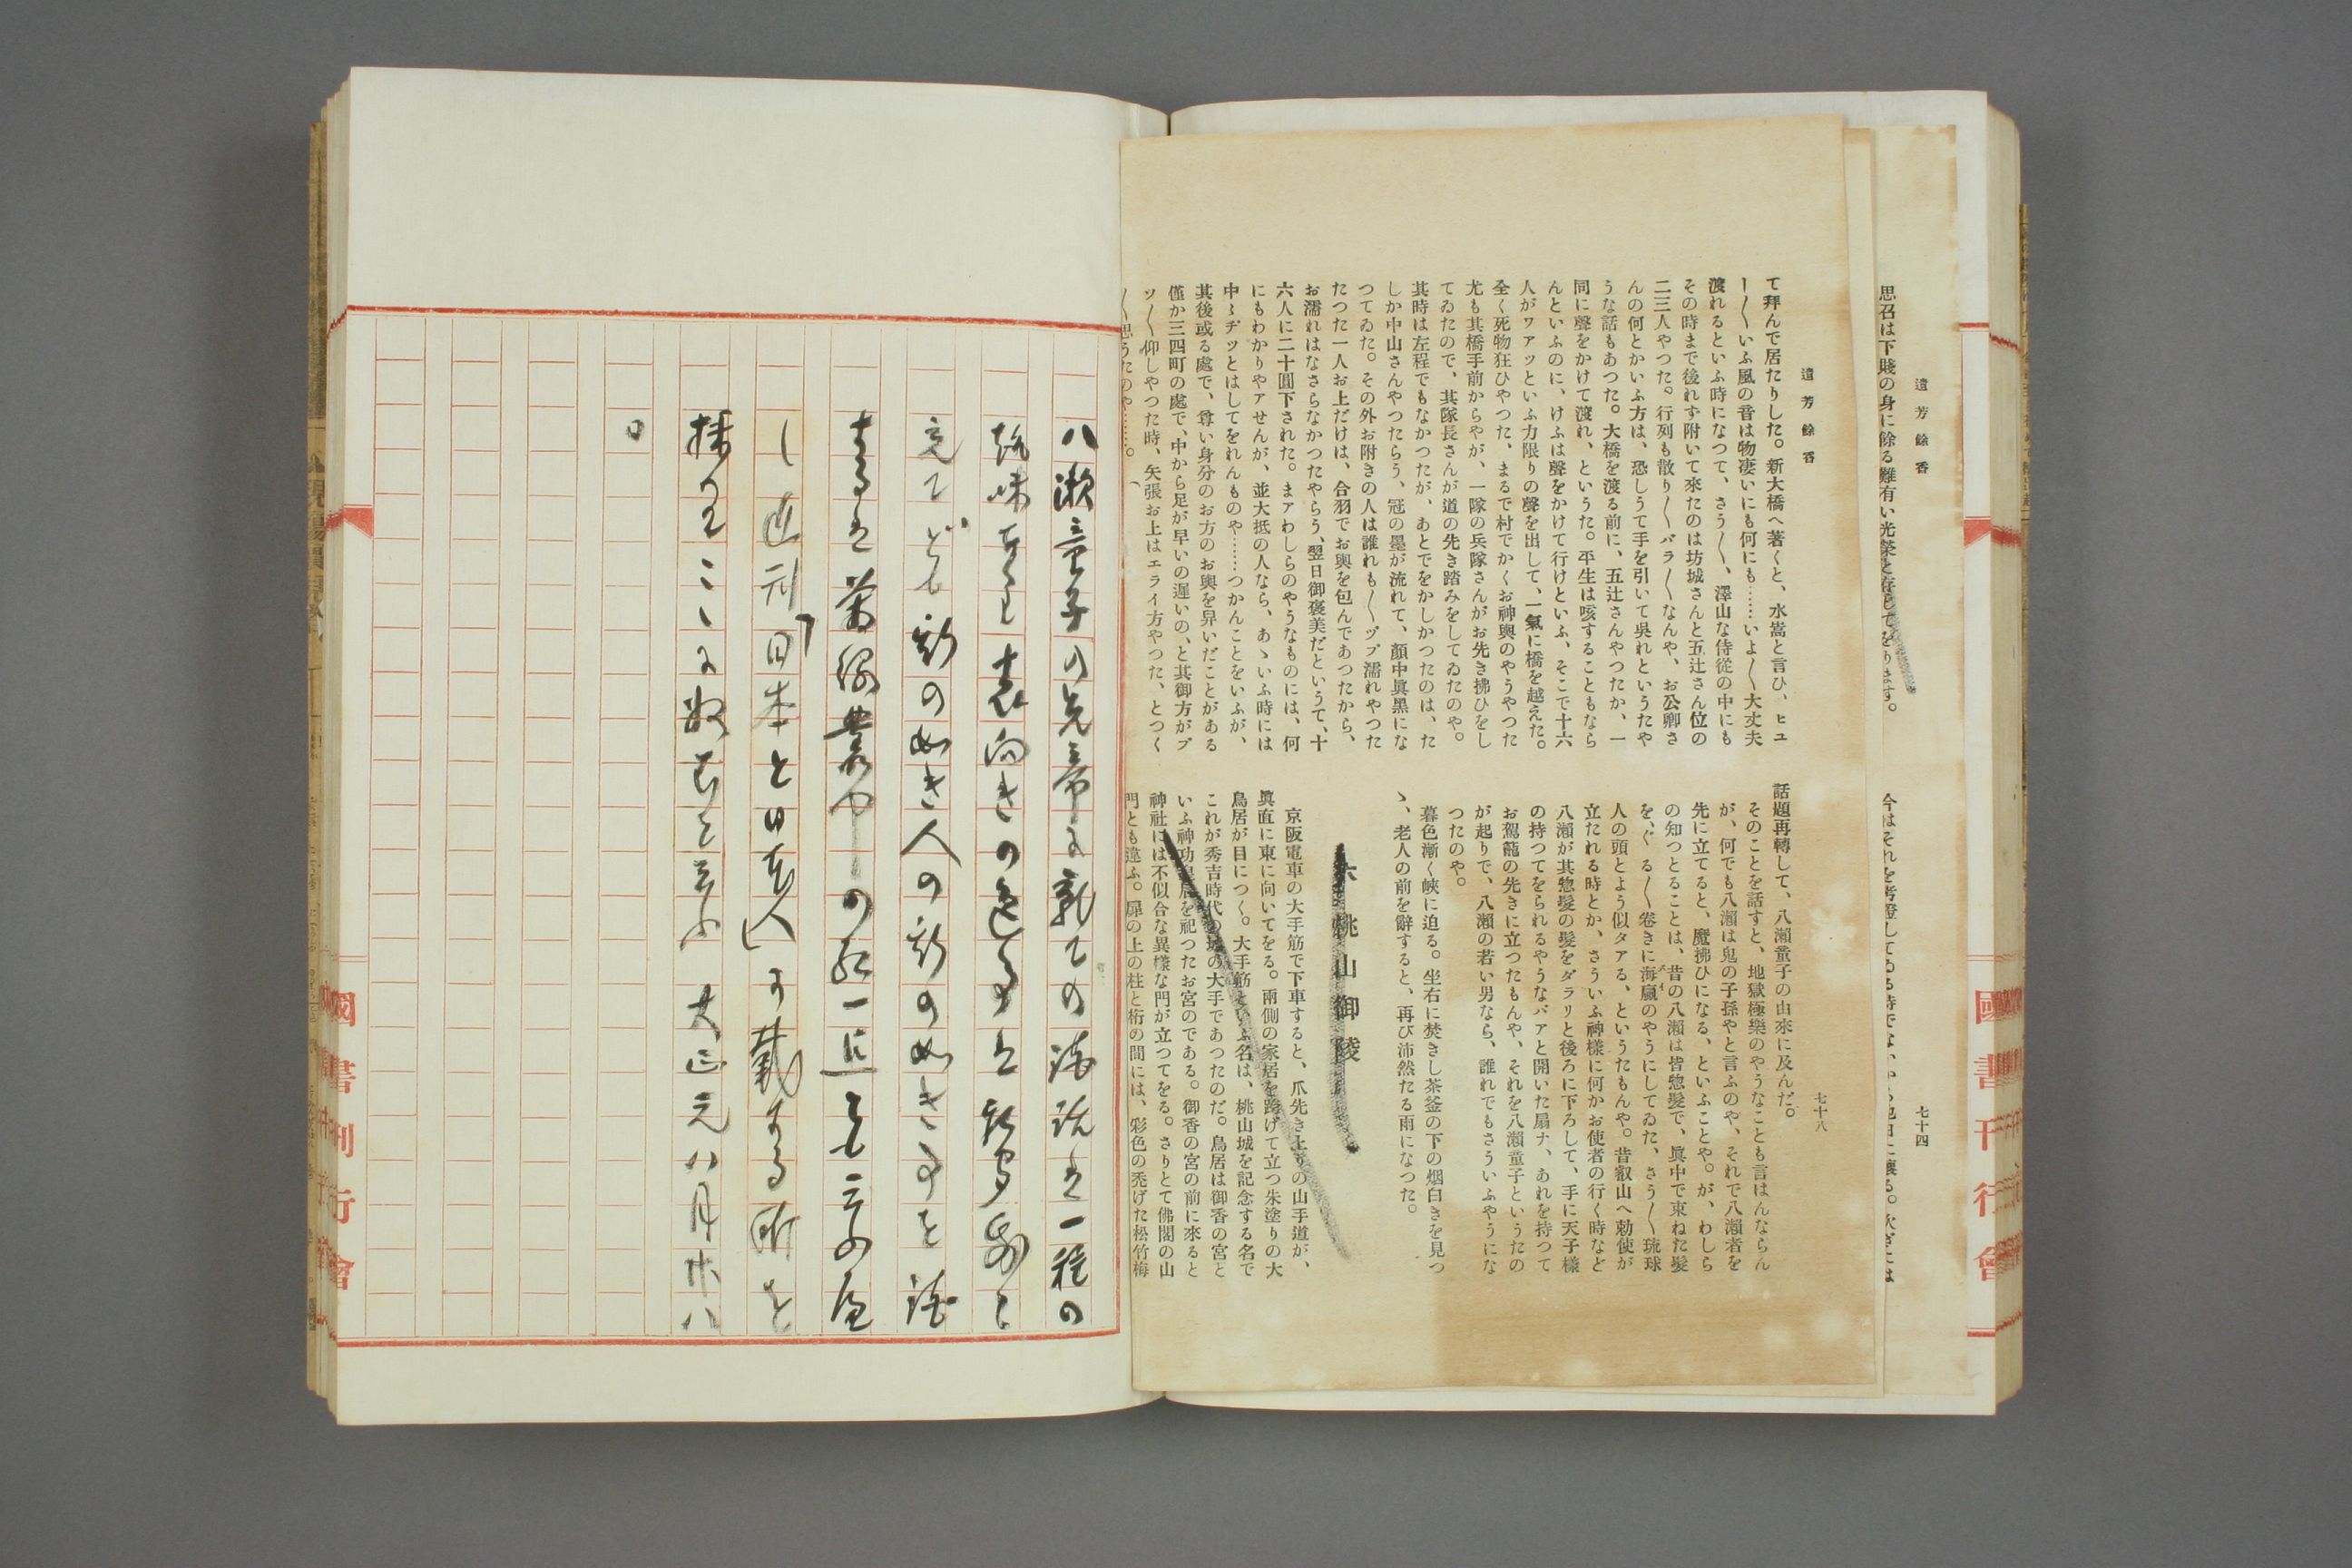 遺芳餘香
思召は下賤の身に餘る難有い光榮と存じてをります。
七十四
遺芳餘香
て拜んで居たりした。新大橋へ著くと、水嵩と言ひ、ヒユ
ー〳〵いふ風の音は物凄いにも何にも……いよ〳〵大丈夫
渡れるといふ時になつて、さう〳〵、澤山な侍從の中にも
その時まで後れず附いて來たのは坊城さんと五辻さん位の
二三人やつた。行列も散り〳〵バラ〳〵なんや、お公卿さ
んの何とかいふ方は、恐しうて手を引いて呉れというたや
うな話もあつた。大橋を渡る前に、五辻さんやつたか、一
同に聲をかけて渡れ、というた。平生は咳することもなら
んといふのに、けふは聲をかけて行けといふ、そこで十六
人がワアッといふ力限りの聲を出して、一氣に橋を越えた。
全く死物狂ひやつた、まるで村でかくお神輿のやうやつた
尤も其橋手前からやが、一隊の兵隊さんがお先き拂ひをし
てゐたので、其隊長さんが道の先き踏みをしてゐたのや。
其時は左程でもなかつたが、あとでをかしかつたのは、た
しか中山さんやつたらう、冠の墨が流れて、顏中眞黑にな
つてゐた。その外お附きの人は誰れも〳〵ヅブ濡れやつた
たつた一人お上だけは、合羽でお輿を包んであつたから、
お濡れはなさらなかつたやらう、翌日御褒美だというて、十
六人に二十圓下された。まアわしらのやうなものには、何
にもわかりやアせんが、並大抵の人なら、あゝいふ時には
中々ヂッとはしてをれんものや……つかんことをいふが、
其後或る處で、尊い身分のお方のお輿を舁いだことがある
僅か三四町の處で、中から足が早いの遲いの、と其御方がブ
ツ〳〵仰しやつた時、矢張お上はエライ方やつた、とつく
〴〵思うたのや……。
七十八
話題再轉して、八瀨童子の由來に及んだ。
そのことを話すと、地獄極樂のやうなことも言はんならん
が、何でも八瀨は鬼の子孫やと言ふのや、それで八瀨者を
先に立てると、魔拂ひになる、といふことや。が、わしら
の知つとることは、昔の八瀨は皆惣髮で、眞中で束ねた髮
を、ぐる〳〵卷きに海贏のやうにしてゐた、さう〳〵琉球
人の頭とよう似タアる、というたもんや。昔叡山へ勅使が
立たれる時とか、さういふ神樣に何かお使者の行く時など
八瀨が其惣髮の髮をダラリと後ろに下ろして、手に天子樣
の持つてをられるやうなバアと開いた扇ナ、あれを持つて
お駕籠の先きに立つたもんや、それを八瀨童子というたの
が起りで、八瀨の若い男なら、誰れでもさういふやうにな
つたのや。
暮色漸く峽に迫る。坐右に焚きし茶釜の下の烟白きを見つ
ゝ、老人の前を辭すると、再び沛然たる雨になつた。
六 桃山御陵
京阪電車の大手筋で下車すると、爪先き上りの山手道が、
眞直に東に向いてをる。兩側の家居を跨げて立つ朱塗りの大
鳥居が目につく。大手筋といふ名は、桃山城を記念する名で
これが秀吉時代の城の大手であつたのだ。鳥居は御香の宮と
いふ神功皇后を祀つたお宮のである。御香の宮の前に來ると
神社には不似合な異樣な門が立つてをる。さりとて佛閣の山
門とも違ふ。扉の上の柱と桁の間には、彩色の禿げた松竹梅
八瀬童子の先帝に就ての談話は一種の
趣味あり表向きの逸事は新聞紙に
見てども斯の如き人の斯の如きことを話
し近刊「日本と日本人」に載する所を
大正元八月廿八
國書刊行會
國書刊行會